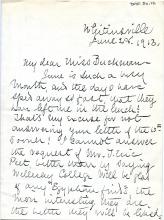 Whitinsville
June 25, 1913.
My dear Miss
June is such a busy
month and the days have
sped away so fast that they
have left me in the lurch!
That's my excuse for not
answering your letter of the 13th
sooner! I cannot answer
the request of Mrs.
better than by saying
Wellesley College will be glad
of any Egyptian finds the
more interesting they are
the better they will be liked